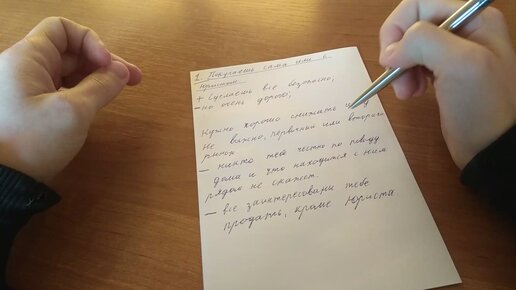 1. Покупаешь сама или с
юристом
+ Сделаешь все безопасно;
- но очень дорого;
Нужно хорошо снизить цену
Не важно, первичный или вторичн
рынок
- никто тебе честно по поводу
дома и что находится с ним
рядом не скажет.
- все заинтересованы тебе
продать, кроме юриста